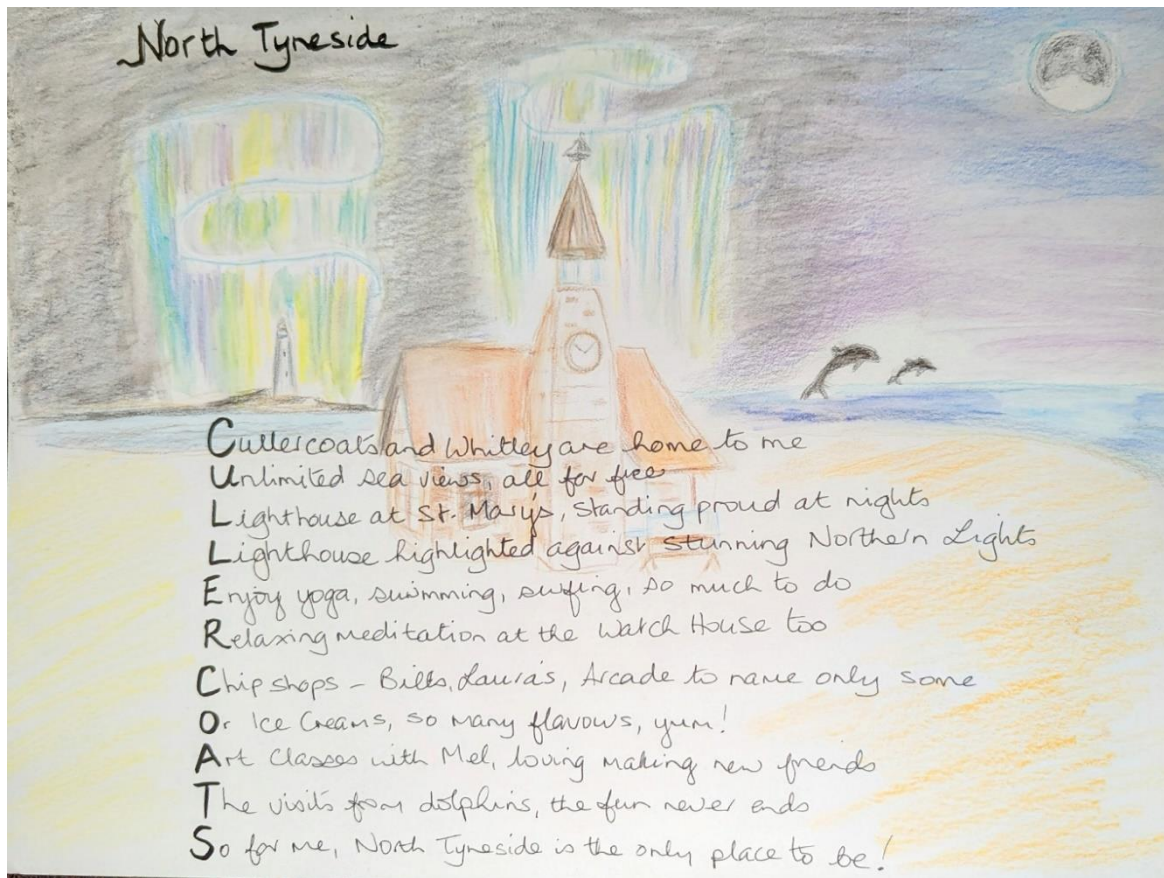 North Tyneside
Cullercoats and Whitley are home to me
Unlimited sea views, all for free
Lighthouse at St. Mary's, standing proud at nights
Lighthouse highlighted against stunning Northern Lights
Enjoy yoga, swimming, surfing, so much to do
Relaxing meditation at the Watch House too
Chip shops - Bills, Laura's, Arcade to name only some
Or Ice Creams, so many flavours, yum!
Art Classes with Mel, loving making new friends
The visits from dolphins, the fun never ends
So for me, North Tyneside is the only place to be!